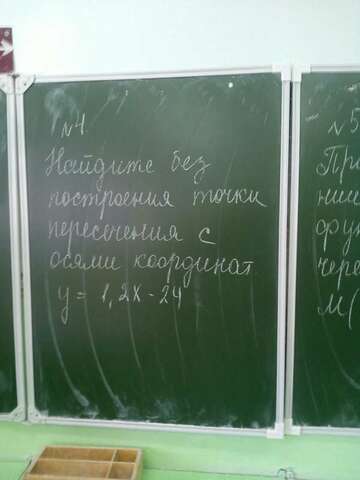 №4
Найдите без
построения точки
пересечения с
осями координат
y = 1,2x - 24
№5
При
ния
фун
чере
M(